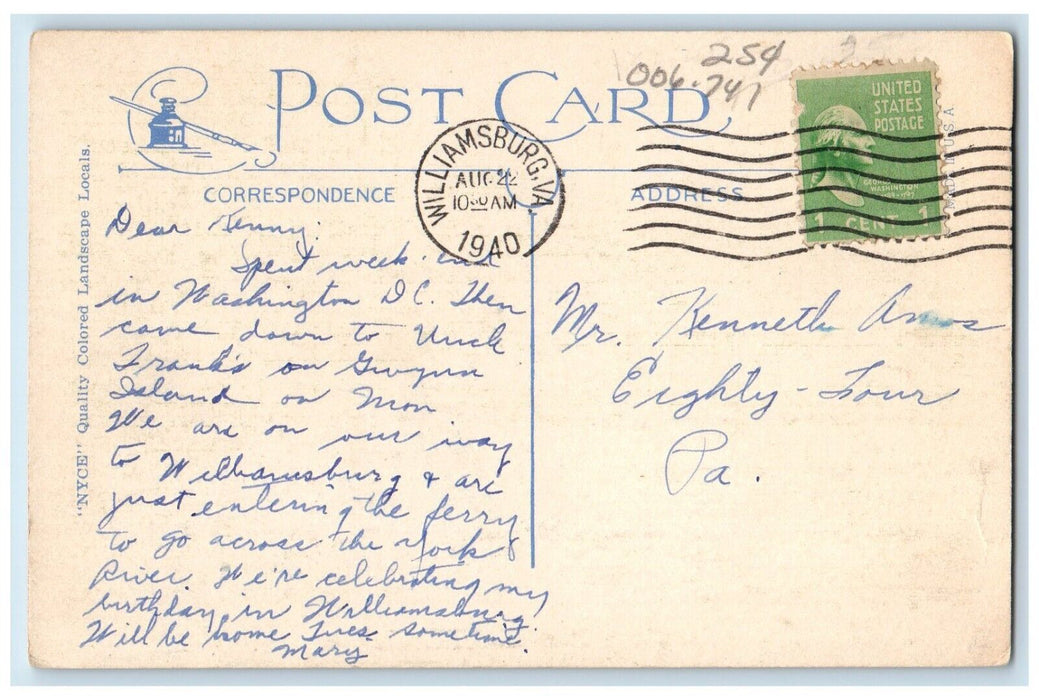 25¢
006.741
POST CARD
UNITED
STATES
POSTAGE
GEORGE
WASHINGTON
1 CENT 1
MADE IN USA
WILLIAMSBURG, VA.
AUG 22
10 30 AM
1940
CORRESPONDENCE
ADDRESS
"NYCE" Quality Colored Landscape Locals.
Dear Kenny:
Spent week-end
in Washington D.C. Then
came down to Uncle
Frank's on Gwynn
Island on Mon
We are on our way
to Williamsburg & are
just entering the ferry
to go across the York
River. We're celebrating my
birthday in Williamsburg.
Will be home Tues. sometime.
Mary
Mr. Kenneth Amos
Eighty-Four
Pa.